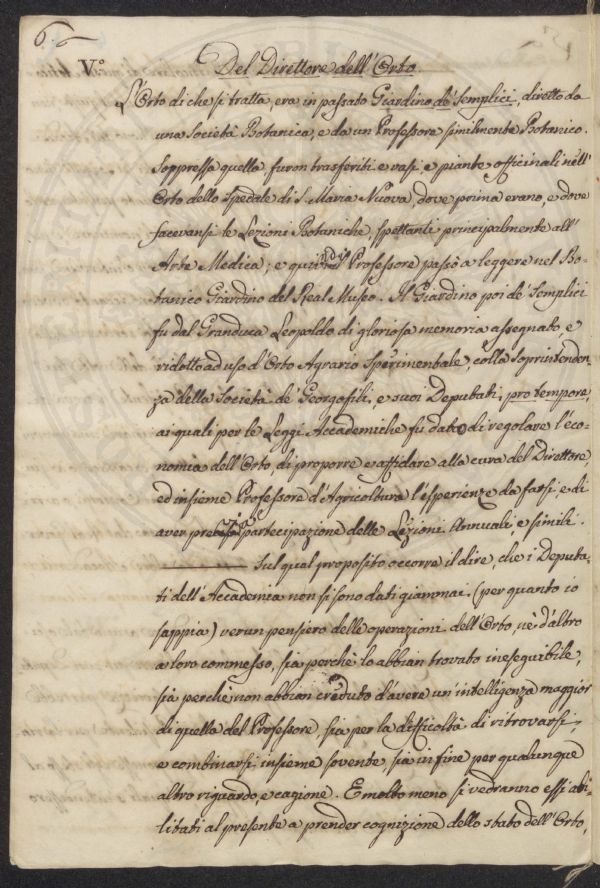 6.
V.° Del Direttore dell'Orto.
L'Orto di che si tratta, era in passato Giardino de' Semplici, diretto da
una Società Botanica, e da un Professore similmente Botanico.
Soppressa quella, furon trasferiti e vasi, e piante officinali nell'
Orto dello Spedale di S. Maria Nuova, dove prima erano, e dove
facevansi le Lezioni Botaniche, spettanti principalmente all'
Arte Medica; e quindi il Professore passò a leggere nel Bo-
tanico Giardino del Real Museo. Il Giardino poi de' Semplici
fu dal Granduca Leopoldo di gloriosa memoria assegnato, e
ridotto ad uso d'Orto Agrario Sperimentale, colla Soprintenden-
za della Società de' Georgofili, e suoi Deputati, pro tempore,
ai quali per le Leggi Accademiche fu dato di regolare l'eco-
nomia dell'Orto, di proporre e affidare alla cura del Direttore,
ed insieme Professore d'Agricoltura l'esperienze da farsi, e di
aver precisa partecipazione delle Lezioni Annuali, e simili.
Sul qual proposito occorre il dire, che i Deputa-
ti dell'Accademia non si sono dati giammai (per quanto io
sappia) verun pensiero delle operazioni dell'Orto, nè d'altro
a loro commesso, sia perchè lo abbian trovato ineseguibile,
sia perchè non abbian creduto d'avere un'intelligenza maggior
di quella del Professore, sia per la difficoltà di ritrovarsi,
e combinarsi insieme sovente, sia in fine per qualunque
altro riguardo, e cagione. E molto meno si vedranno essi abi-
litati al presente a prender cognizione dello stato dell'Orto,